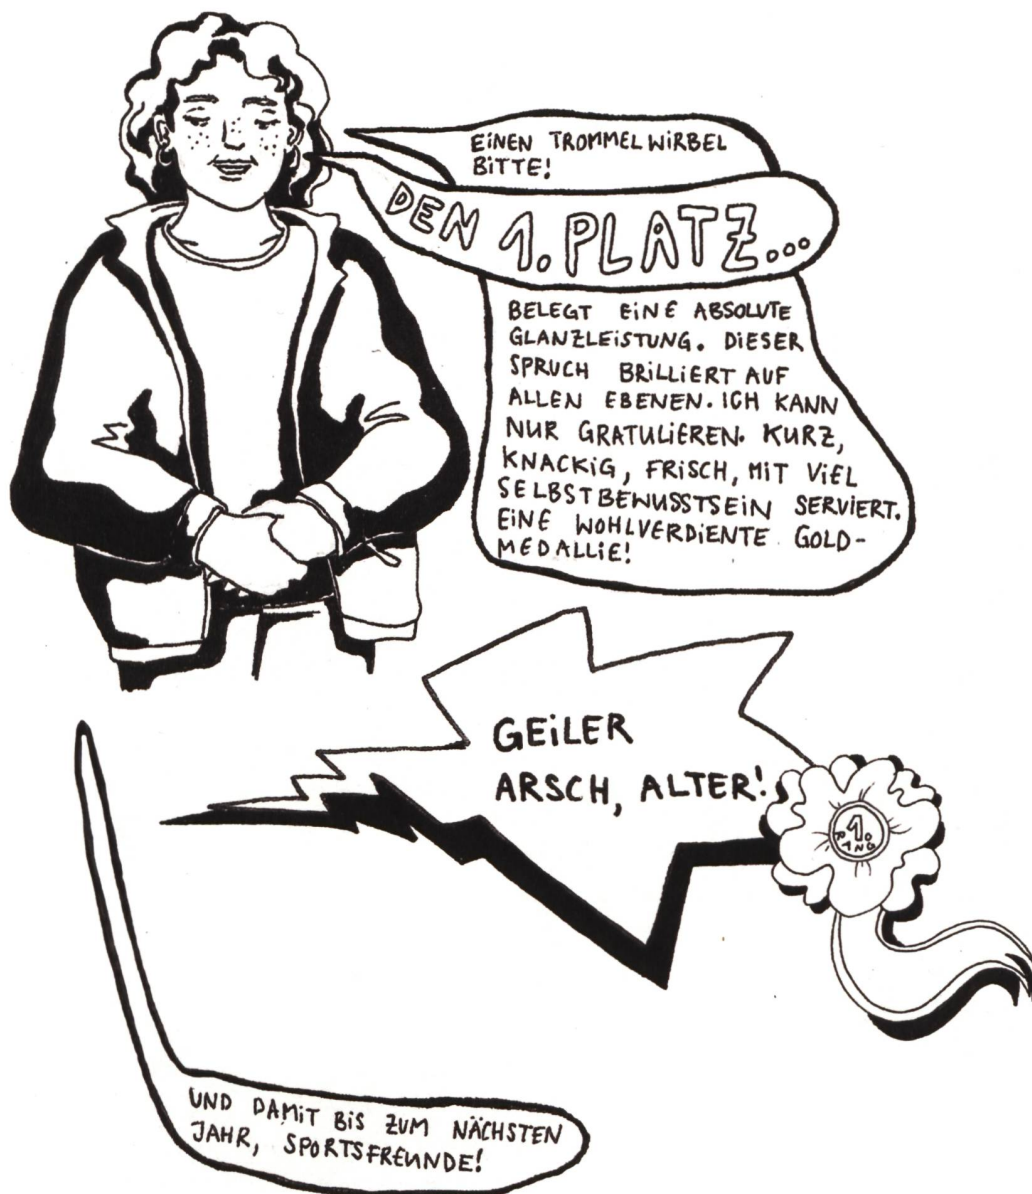 EINEN TROMMELWIRBEL
BITTE!
DEN 1. PLATZ...
BELEGT EINE ABSOLUTE
GLANZLEISTUNG. DIESER
SPRUCH BRILLIERT AUF
ALLEN EBENEN. ICH KANN
NUR GRATULIEREN. KURZ,
KNACKIG, FRISCH, MIT VIEL
SELBSTBEWUSSTSEIN SERVIERT.
EINE WOHLVERDIENTE GOLD-
MEDALLIE!
GEILER
ARSCH, ALTER!
1.
RANG
UND DAMIT BIS ZUM NÄCHSTEN
JAHR, SPORTSFREUNDE!